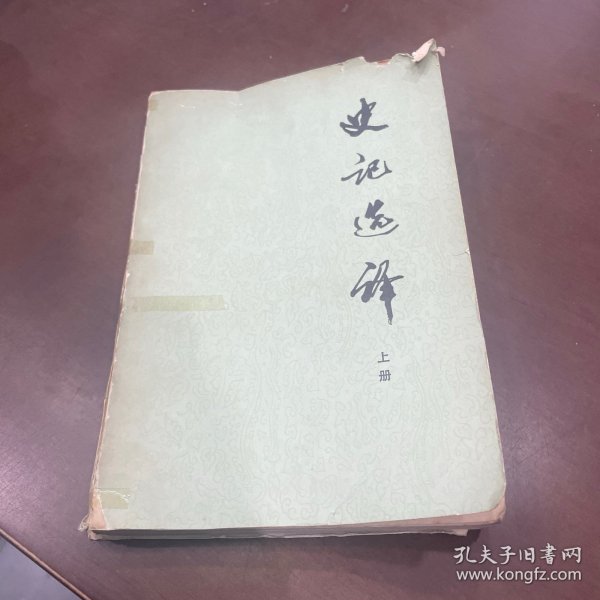 史记选译
上册
孔夫子旧書网
www.kongfz.com